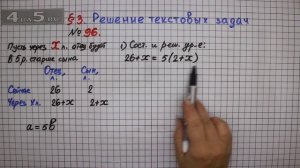 4 АБ.RU
§3. Решение текстовых задач
№ 96.
Пусть через X л. отец будет
в 5 р. старше сына
1) Сост. и реш. ур-е:
26+x = 5(2+x)
Отец, Сын,
л. л.
Сейчас 26 2
Через X л. 26+x 2+x
a = 5b